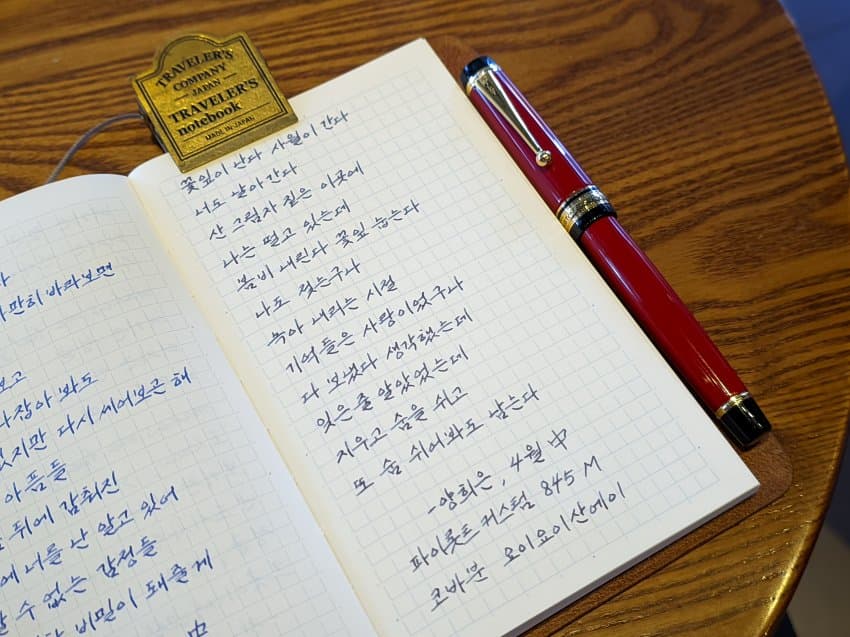 TRAVELER'S
COMPANY
JAPAN
TRAVELER'S
notebook
MADE IN JAPAN
바라보면
보고
봐도
다시 세어보곤 해
아픔들
뒤에 감춰진
너를 난 알고 있어
수 없는 감정들
비밀이 돼줄게
中
꽃잎이 난다 사월이 간다
너도 날아간다
산 그림자 짙은 이곳에
나는 떨고 있는데
봄비 내린다 꽃잎 눕는다
나도 젖는구나
녹아 내리는 시절
기억들은 사랑이었구나
다 보냈다 생각했는데
잊은줄 알았었는데
지우고 숨을 쉬고
또 숨 쉬어봐도 남는다
-양희은, 4월 中
파이롯트 커스텀 845 M
코바분 오이요이산에이